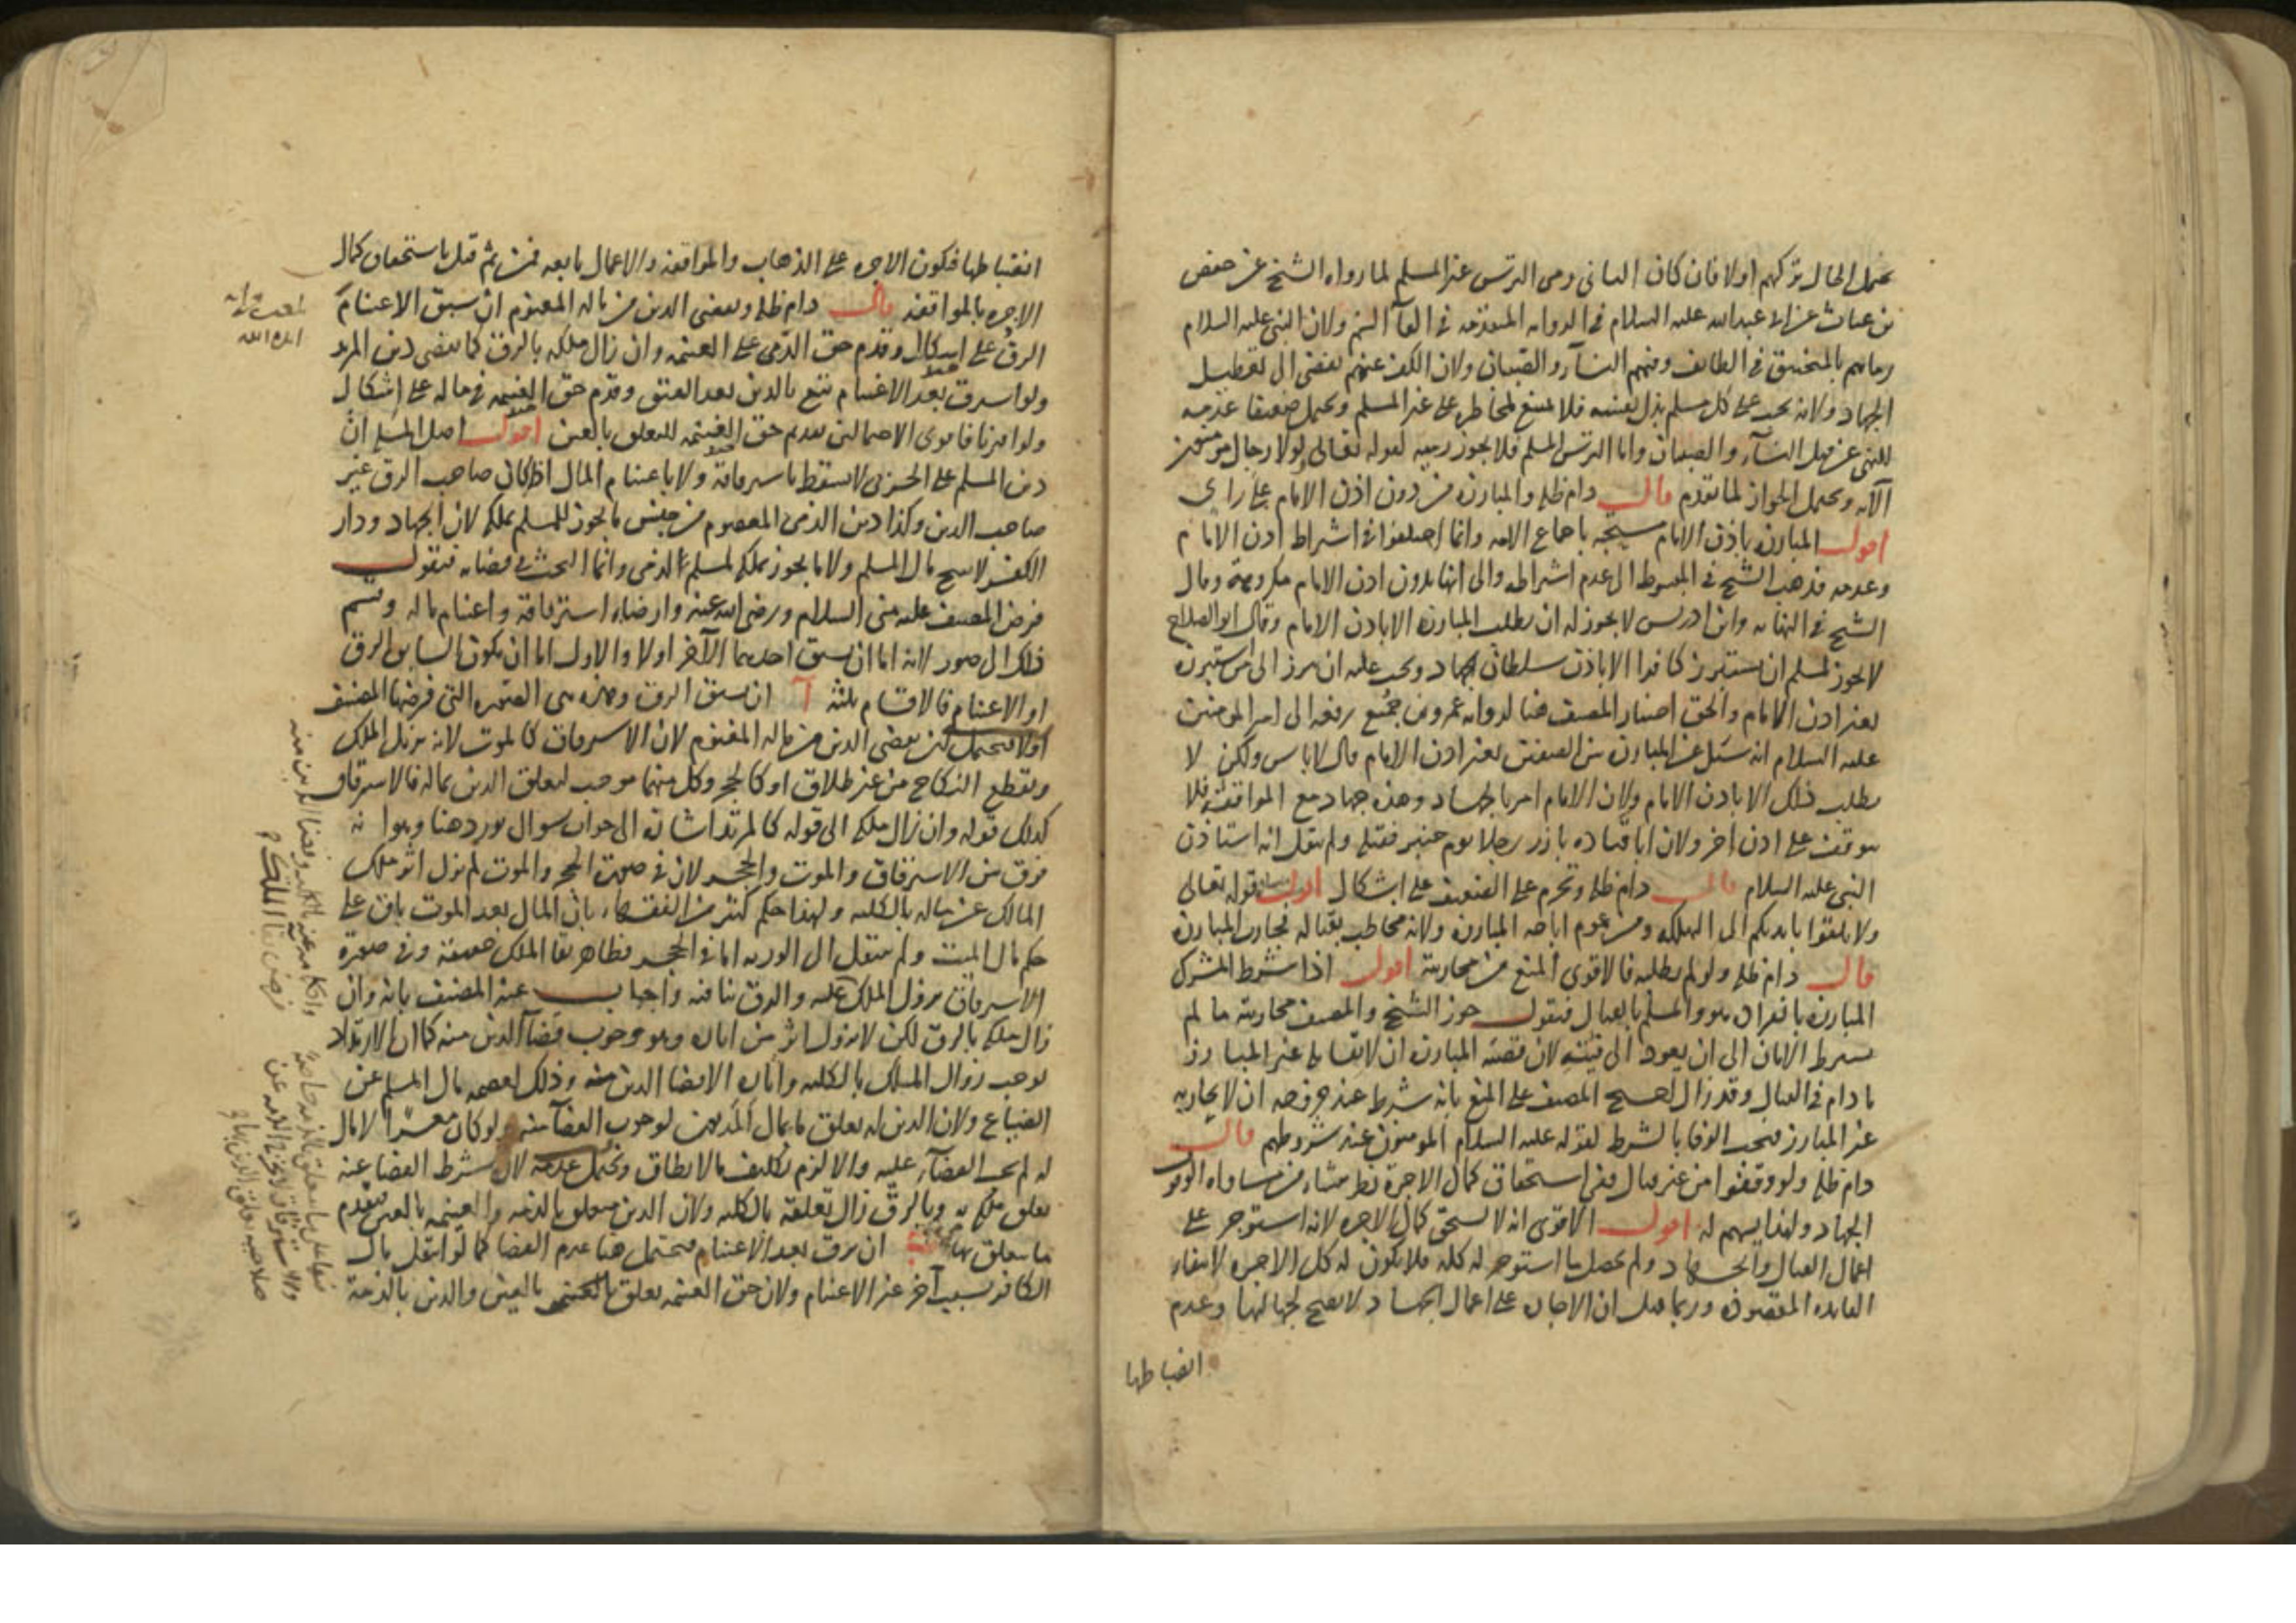 يحتمل الحال تركهم اولا فان كان الثانى رمى الترس غير المسلم لما رواه الشيخ عن حفص
بن غياث عن ابى عبدالله عليه السلام فى الرواية المتقدمة فى القآء السم ولان النبى عليه السلام
رماهم بالمنجنيق فى الطائف وفيهم النسآء والصبيان ولان الكف عنهم يفضى الى تعطيل
الجهاد ولانه يجب على كل مسلم بذل نفسه فلا يمنع المخاطرة على غير المسلم ويحتمل ضعيفا عدمه
للنهى عن قتل النسآء والصبيان واما الترس المسلم فلا يجوز رميه لقوله تعالى ولولا رجال مؤمنون
الآية ويحتمل الجواز لما تقدم قال دام ظله والمبارزة من دون اذن الامام على راى
اقول المبارزة باذن الامام مستحبة باجماع الامة وانما اختلفوا فى اشتراط اذن الامام
وعدمه فذهب الشيخ فى المبسوط الى عدم اشتراطه والى انها بدون اذن الامام مكروهة وقال
الشيخ فى النهاية وابن ادريس لا يجوز له ان يطلب المبارزة الا باذن الامام وقال ابو الصلاح
لا يجوز لمسلم ان يستبرز كافرا الا باذن سلطان الجهاد ويجب عليه ان يبرز الى من استبرزه
بغير اذن الامام والحق اختيار المصنف هنا لرواية عمرو بن جميع رفعه الى امير المؤمنين
عليه السلام انه سئل عن المبارزة بين الصفين بغير اذن الامام قال لا باس ولكن لا
يطلب ذلك الا باذن الامام ولان الامام امر بالجهاد وهذه جهاد مع الموافقة فلا
يتوقف على اذن اخر ولان ابا قتادة بارز رجلا يوم حنين فقتله ولم ينقل انه استاذن
النبى عليه السلام قال دام ظله وتحرم على الضعيف على اشكال اقول قوله تعالى
ولا تلقوا بايديكم الى التهلكة ومن عموم اباحة المبارزة ولانه مخاطب بقتاله فجازت المبارزة
قال دام ظله ولو لم يطلبه فالاقوى المنع من محاربته اقول اذا شرط المشرك
المبارزة بانفراده هو والمسلم بالقتال فنقول جوز الشيخ والمصنف محاربته ما لم
يشترط الامان الى ان يعود الى فئته لان قضية المبارزة ان لا يقاتله غير المبارز
ما دام فى القتال وقد زال احتج المصنف على المنع بانه شرط عند خروجه ان لا يحاربه
غير المبارز فيجب الوفا بالشرط لقوله عليه السلام المؤمنون عند شروطهم قال
دام ظله ولو وقفوا من غير قتال ففى استحقاق كمال الاجرة نظر ينشاء من مساواة الوقوف
الجهاد ولهذا يسهم له اقول الاقوى انه لا يستحق كمال الاجرة لانه استوجر على
اعمال القتال والجهاد ولم يحصل ما استوجر له كله فلا يكون له كل الاجرة لانتفاء
الفايدة المقصودة وربما قيل ان الاجارة على اعمال الجهاد لا يصح لجهالتها وعدم
انضباطها
انضباطها فيكون الاجرة على الذهاب والمواقفة والاعمال تابعة فمن ثم قيل باستحقاق كمال
الاجرة بالمواقفة قال دام ظله ويقضى الدين من ماله المغنوم ان سبق الاغتنام
الرق على اشكال وقدم حق الدين على الغنيمة وان زال ملكه بالرق كما يقضى دين المرتد
ولو استرق بعد الاغتنام تبع بالدين بعد العتق وقدم حق الغنيمة فى ماله على اشكال
ولو اقترنا فاقوى الاحتمالين تقديم حق الغنيمة للتعلق بالعين اقول اصل المسئلة ان
دين المسلم على الحربى لا يسقط باسترقاقه ولا باغتنام المال اذا كان صاحب الرق غير
صاحب الدين وكذا دين الذمى المعصوم من جنس ما يجوز للمسلم تملكه لان الجهاد ودار
الكفر لا يبيح مال المسلم ولا ما يجوز تملكه لمسلم للذمى وانما البحث فى قضائه فنقول
فرض المصنف عليه منى السلام ورضى الله عنه وارضاه استرقاقه واغتنام ماله وقسم
ذلك الى صور لانه اما ان يسبق احدهما الآخر اولا والاول اما ان يكون السابق الرق
او الاغتنام فالاقسام ثلثة آ ان سبق الرق وهذه هى الصورة التى فرضها المصنف
اولا فيحتمل ان يقضى الدين من ماله المغنوم لان الاسترقاق كالموت لانه يزيل الملك
ويقطع النكاح من غير طلاق او كالحجر وكل منهما موجب لتعلق الدين بماله فالاسترقاق
كذلك قوله وان زال ملكه الى قوله كالمرتد اشارة الى جواب سوال يورد هنا وهو انه
فرق بين الاسترقاق والموت والحجر لان فى صورة الحجر والموت لم يزل اثر ملك
المالك عن ماله بالكلية ولهذا حكم كثير من الفقهاء بان المال بعد الموت باق على
حكم مال الميت ولم ينتقل الى الورثة اما فى الحجر فظاهر بقا الملك حقيقة وفى صورة
الاسترقاق يزول الملك عنه والرق ينافيه واجاب عنه المصنف بانه وان
زال ملكه بالرق لكن لا يزول اثر من اثاره وهو وجوب قضآ الدين منه كما ان الارتداد
يوجب زوال الملك بالكلية واثاره الا قضا الدين منه وذلك لعصمة مال المسلم عن
الضياع ولان الدين له تعلق ما بمال المديون لوجوب القضآء منه ولو كان معسرا لا مال
له لم يجب القضآء عليه والا لزم تكليف ما لا يطاق ويحتمل عدمه لان شرط القضا عنه
تعلق ملكه به وبالرق زال تعلقه بالكلية ولان الدين متعلق بالذمة والغنيمة بالعين فيقدم
ما يتعلق بها ب ان يرق بعد الاغتنام فيحتمل هنا عدم القضا كما لو انتقل مال
الكافر بسبب آخر غير الاغتنام ولان حق الغنيمة تعلق بالعين والدين بالذمة
ايده الله